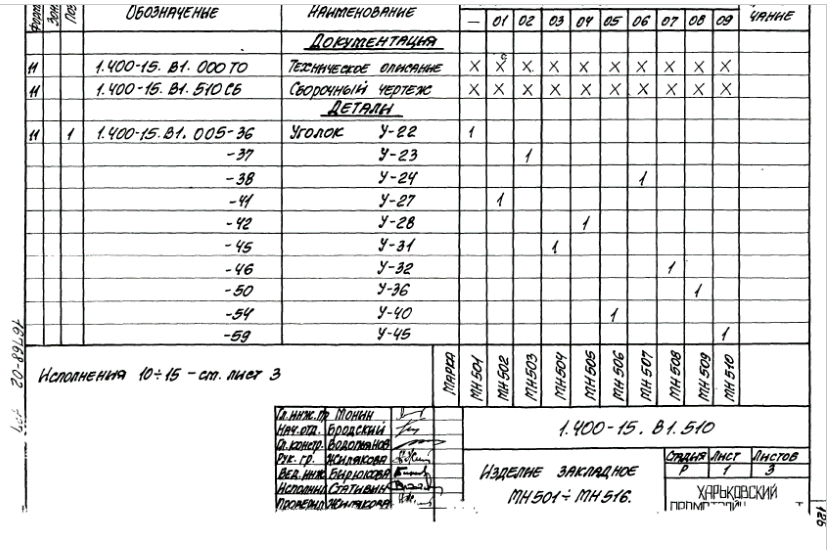 Форм. Зон. Поз. Обозначение Наименование — 01 02 03 04 05 06 07 08 09 чание
Документация
11 1.400-15.В1.000ТО Техническое описание X X X X X X X X X X
11 1.400-15.В1.510СБ Сборочный чертеж X X X X X X X X X X
Детали
11 1 1.400-15.В1.005-36 Уголок У-22 1
-37 У-23 1
-38 У-24 1
-41 У-27 1
-42 У-28 1
-45 У-31 1
-46 У-32 1
-50 У-36 1
-54 У-40 1
-59 У-45 1
Исполнения 10÷15 – см. лист 3
Марка МН501 МН502 МН503 МН504 МН505 МН506 МН507 МН508 МН509 МН510
Гл.инж.пр Монин
Нач.отд. Бродский
Гл.констр. Водопьянов
Рук. гр. Жилякова
Вед.инж. Бирюкова
Исполнил Стативын
Проверил Жилякова
1.400-15.В1.510
Изделие закладное
МН501÷МН516.
Стадия Лист Листов
Р 1 3
Харьковский
126